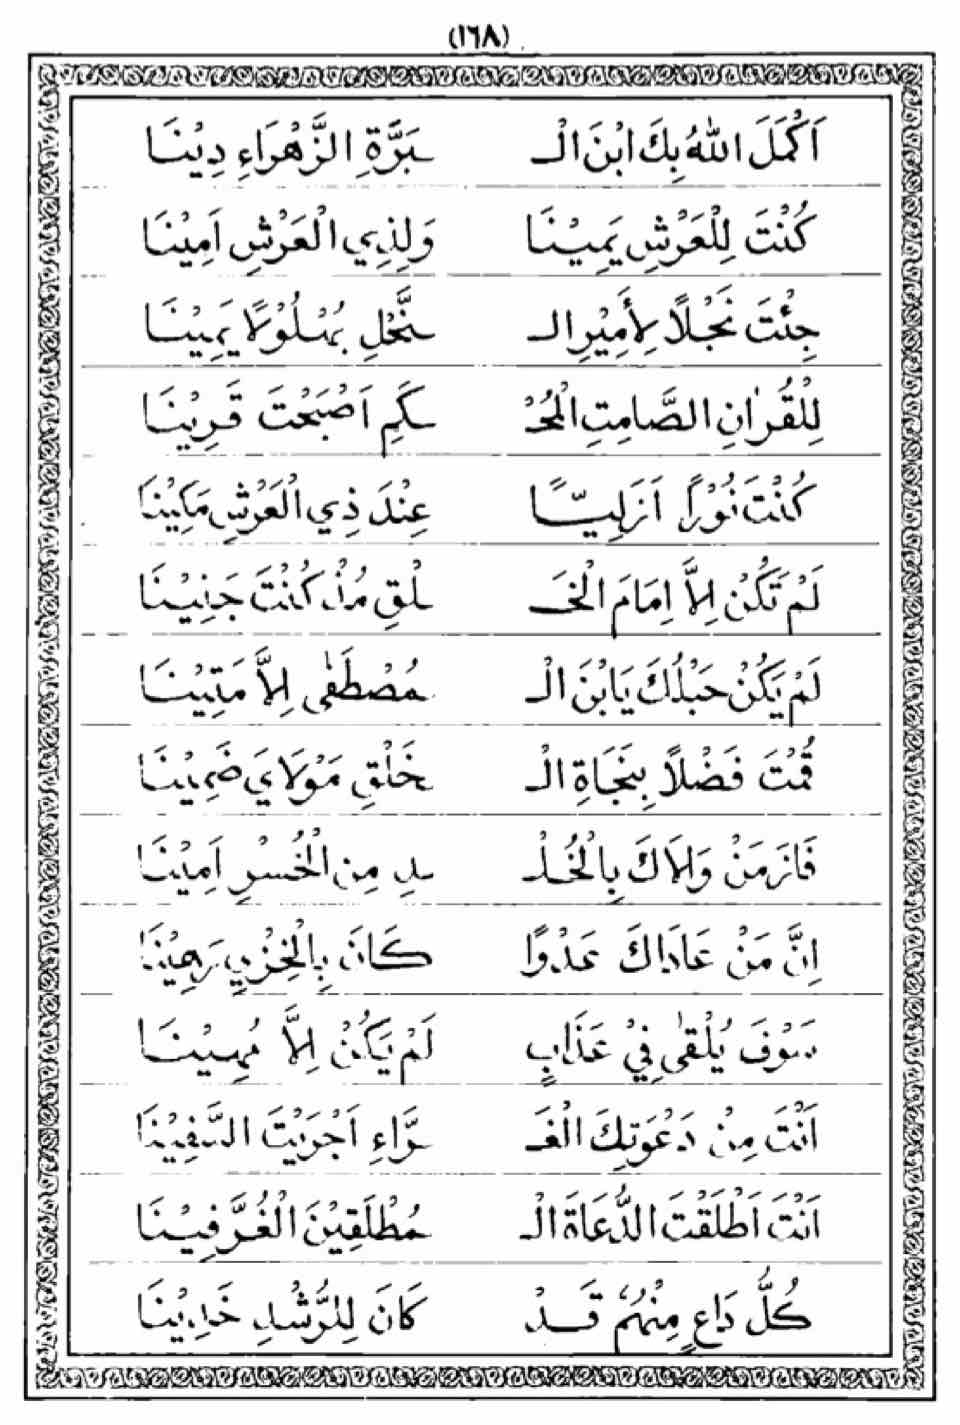 (١٦٨)
اَكْمَلَ اللهُ بِكَ ابْنَ الْـ ـبَرَّةِ الزَّهْرَاءِ دِيْنَا
كُنْتَ لِلْعَرْشِ يَمِيْنَا وَلِذِي الْعَرْشِ اَمِيْنَا
جِئْتَ نَجْلًا لِأَمِيْرِ الـ ـنَّحْلِ بُهْلُوْلًا يَمِيْنَا
لِلْقُرْاٰنِ الصَّامِتِ الْمُحْـ ـكَمِ اَصْبَحْتَ قَرِيْنَا
كُنْتَ نُوْرًا اَزَلِيًّا عِنْدَ ذِي الْعَرْشِ مَكِيْنَا
لَمْ تَكُنْ اِلاَّ اِمَامَ الْخَـ ـلْقِ مُذْ كُنْتَ جَنِيْنَا
لَمْ يَكُنْ حَبْلُكَ يَابْنَ الْـ ـمُصْطَفٰى اِلاَّ مَتِيْنَا
قُمْتَ فَضْلًا بِنَجَاةِ الْـ ـخَلْقِ مَوْلَايَ ضَمِيْنَا
فَازَ مَنْ وَلاَكَ بِالْخُلْـ ـدِ مِنَ الْخُسْرِ اَمِيْنَا
اِنَّ مَنْ عَادَاكَ عَدْوًا كَانَ بِالْخِزْيِ رَهِيْنَا
سَوْفَ يُلْقٰى فِيْ عَذَابٍ لَمْ يَكُنْ اِلاَّ مُهِيْنَا
اَنْتَ مِنْ دَعْوَتِكَ الْغَـ ـرَّاءِ اَجْرَيْتَ السَّفِيْنَا
اَنْتَ اَطْلَقْتَ الدُّعَاةَ الْـ ـمُطْلَقِيْنَ الْغُرَّ فِيْنَا
كُلُّ دَاعٍ مِنْهُمُ قَـدْ كَانَ لِلرُّشْدِ خَدِيْنَا